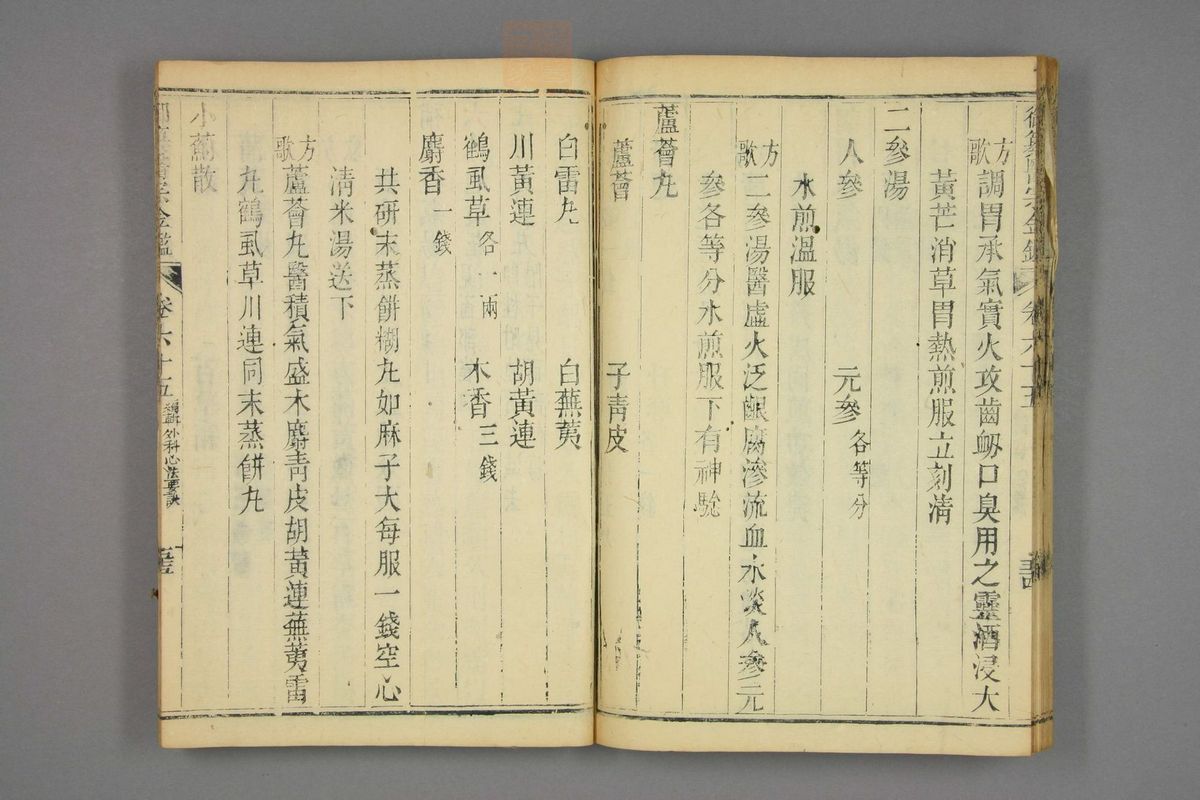 方歌 調胃承氣實火攻齒衂口臭用之靈酒浸大
黃芒消草胃熱煎服立刻清
二參湯
人參 元參各等分
水煎溫服
方歌 二參湯醫虛火泛齦腐滲流血水淡人參元
參各等分水煎服下有神驗
蘆薈丸
蘆薈 子青皮
白雷丸 白蕪荑
川黃連 胡黃連
鶴虱草各一兩 木香三錢
麝香一錢
共研末蒸餅糊丸如麻子大每服一錢空心
清米湯送下
方歌 蘆薈丸醫積氣盛木麝青皮胡黃連蕪荑雷
丸鶴虱草川連同末蒸餅丸
小薊散
金鑑 卷六十五 編輯外科心法要訣